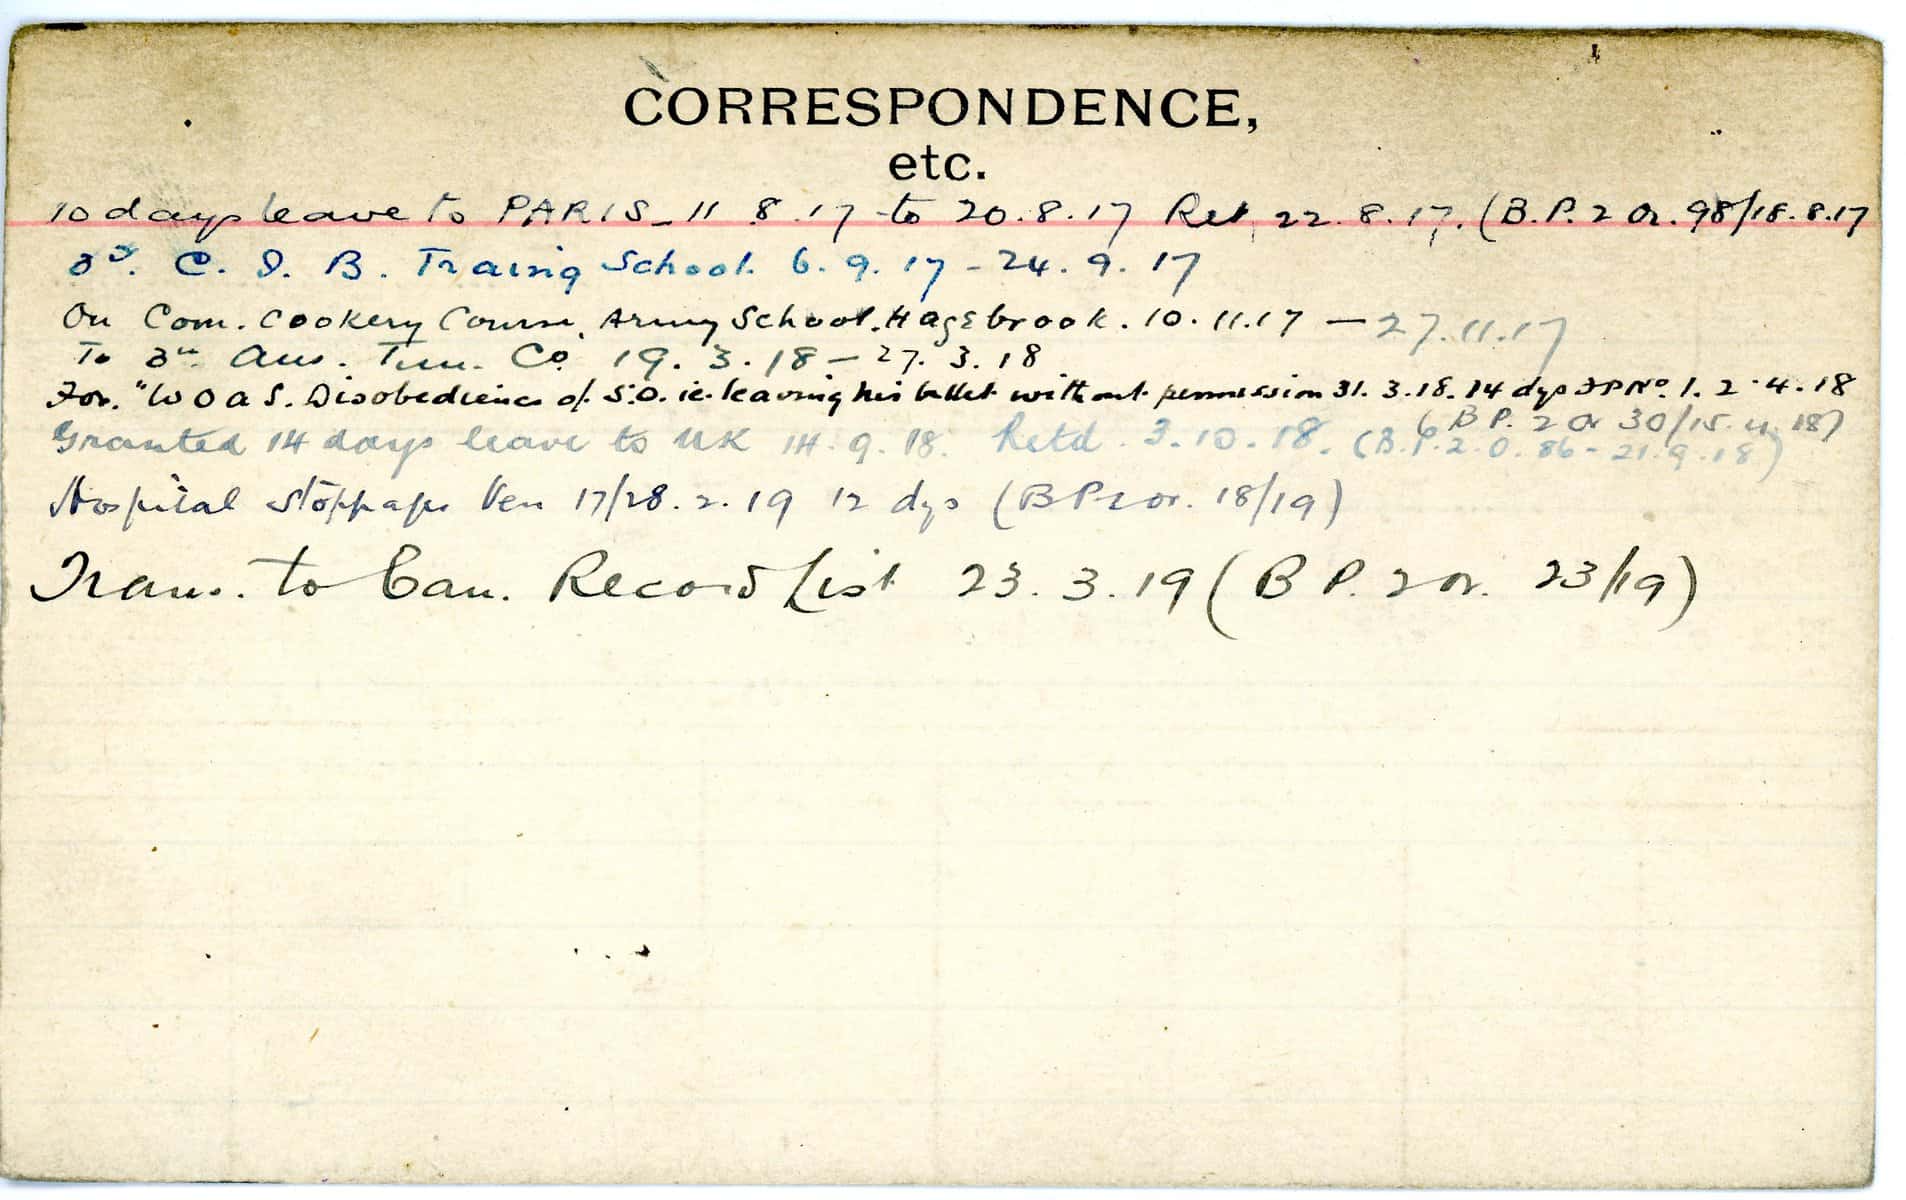 CORRESPONDENCE,
etc.
10 days leave to PARIS - 11 8.17 to 20.8.17 Ret 22.8.17. (B.P. 2 Or. 98/18.8.17
3rd. C. I. B. Traing School. 6.9.17 - 24.9.17
On Com. Cookery Course, Army School. Hagebrook. 10.11.17 — 27.11.17
To 3rd Aus. Tun. Co. 19.3.18 - 27.3.18
For. "W O a S. Disobedience of S.O. ie. leaving his billet without permission 31.3.18. 14 dys FP No. 1. 2.4.18
(B P. 2 Or 30/15.4.18)
Granted 14 days leave to UK 14.9.18. Retd. 3.10.18. (B.P.2.O. 86 - 21.9.18)
Hospital Stoppage Ven 17/28.2.19 12 dys (B P 2 or. 18/19)
Trans. to Can. Record List 23.3.19 (B P. 2 or. 23/19)